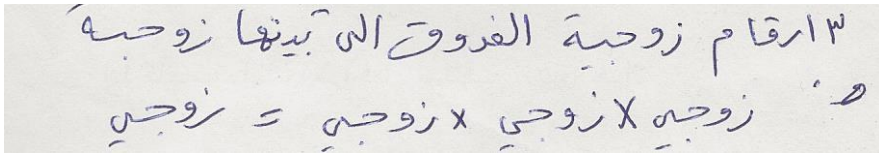 ٣ ارقام زوجية الفروق التي بينها زوجية
∴ زوجي × زوجي × زوجي = زوجي